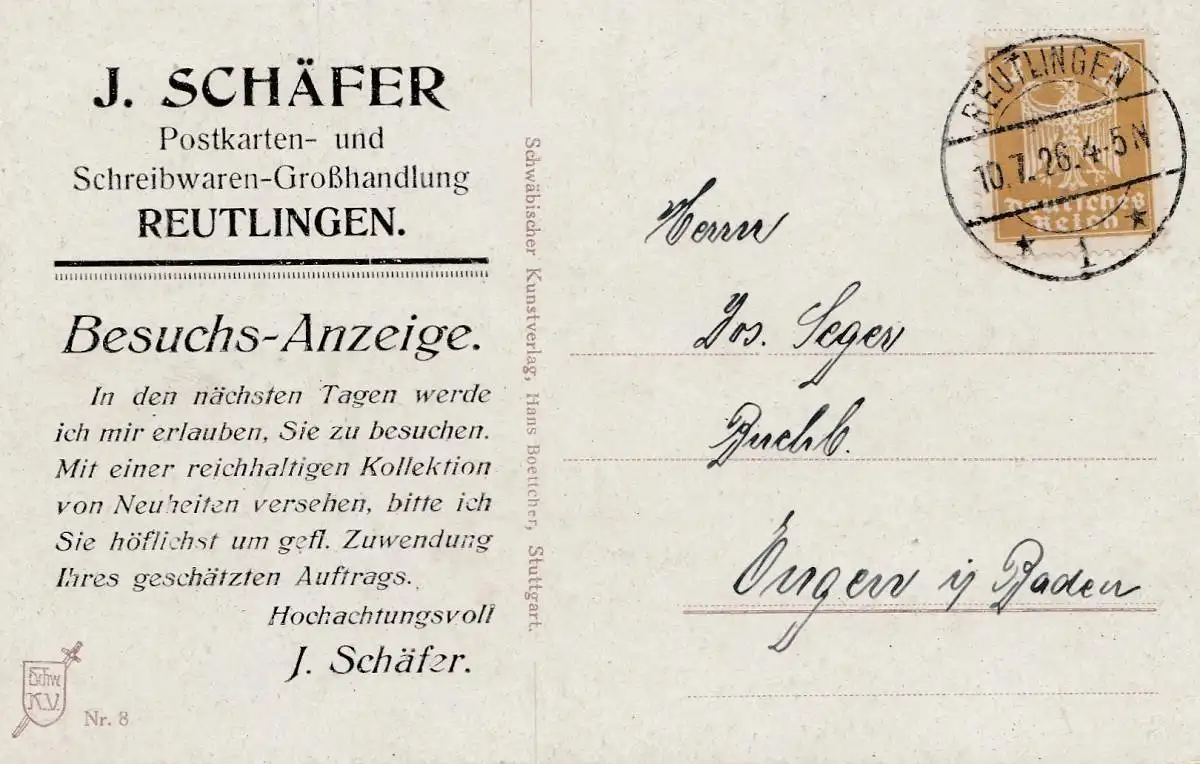 J. SCHÄFER
Postkarten- und
Schreibwaren-Großhandlung
REUTLINGEN.
Besuchs-Anzeige.
In den nächsten Tagen werde
ich mir erlauben, Sie zu besuchen.
Mit einer reichhaltigen Kollektion
von Neuheiten versehen, bitte ich
Sie höflichst um gefl. Zuwendung
Ihres geschätzten Auftrags.
Hochachtungsvoll
J. Schäfer.
Schw.
K.V.
Nr. 8
Schwäbischer Kunstverlag, Hans Boettcher, Stuttgart.
REUTLINGEN
10.7.26.4-5N
* 1 *
3
Deutsches
Reich
Herrn
Jos. Seger
Buchb.
Engen i/ Baden